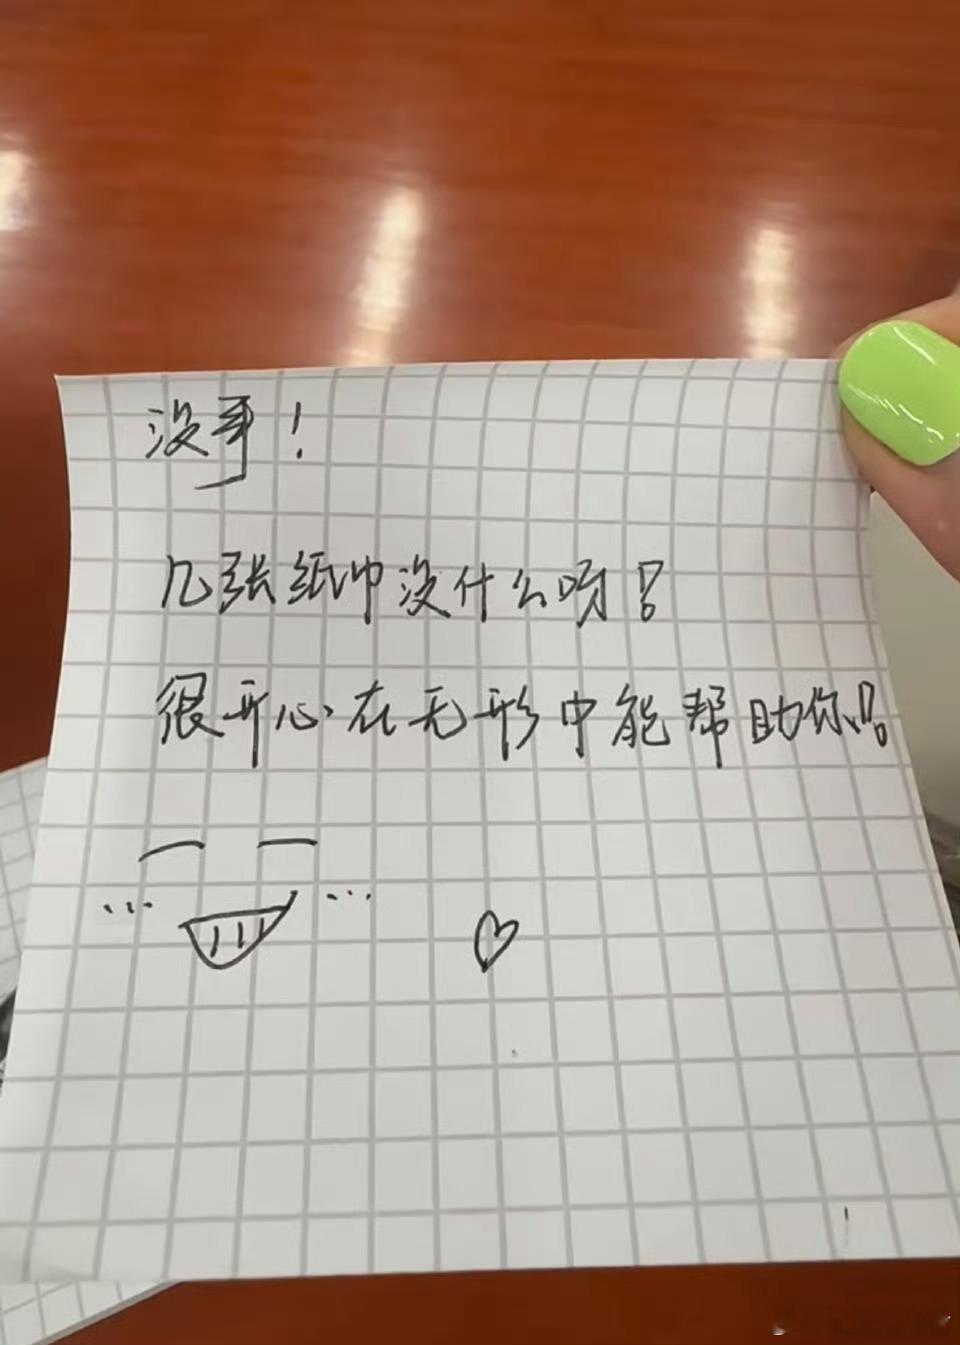 没事！
几张纸巾没什么呀！
很开心在无形中能帮助你！